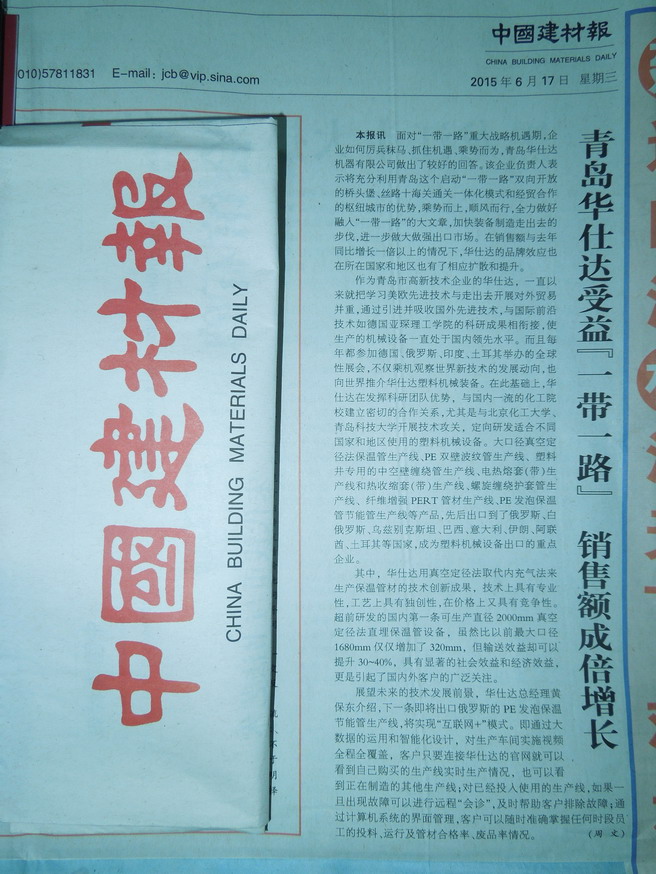 中國建材報
CHINA BUILDING MATERIALS DAILY
010)57811831 E-mail: jcb@vip.sina.com
2015年6月17日 星期三
青岛华仕达受益『一带一路』 销售额成倍增长
本报讯 面对“一带一路”重大战略机遇期,企
业如何厉兵秣马、抓住机遇、乘势而为,青岛华仕达
机器有限公司做出了较好的回答。该企业负责人表
示将充分利用青岛这个启动“一带一路”双向开放
的桥头堡、丝路十海关通关一体化模式和经贸合作
的枢纽城市的优势,乘势而上,顺风而行,全力做好
融入“一带一路”的大文章,加快装备制造走出去的
步伐,进一步做大做强出口市场。在销售额与去年
同比增长一倍以上的情况下,华仕达的品牌效应也
在所在国家和地区也有了相应扩散和提升。
作为青岛市高新技术企业的华仕达,一直以
来就把学习美欧先进技术与走出去开展对外贸易
并重,通过引进并吸收国外先进技术,与国际前沿
技术如德国亚琛理工学院的科研成果相衔接,使
生产的机械设备一直处于国内领先水平。而且每
年都参加德国、俄罗斯、印度、土耳其举办的全球
性展会,不仅乘机观察世界新技术的发展动向,也
向世界推介华仕达塑料机械装备。在此基础上,华
仕达在发挥科研团队优势,与国内一流的化工院
校建立密切的合作关系,尤其是与北京化工大学、
青岛科技大学开展技术攻关,定向研发适合不同
国家和地区使用的塑料机械设备。大口径真空定
径法保温管生产线、PE双壁波纹管生产线、塑料
井专用的中空壁缠绕管生产线、电热熔套(带)生
产线和热收缩套(带)生产线、螺旋缠绕护套管生
产线、纤维增强PERT管材生产线、PE发泡保温
管节能管生产线等产品,先后出口到了俄罗斯、白
俄罗斯、乌兹别克斯坦、巴西、意大利、伊朗、阿联
酋、土耳其等国家,成为塑料机械设备出口的重点
企业。
其中,华仕达用真空定径法取代内充气法来
生产保温管材的技术创新成果,技术上具有专业
性,工艺上具有独创性,在价格上又具有竞争性。
超前研发的国内第一条可生产直径2000mm真空
定径法直埋保温管设备,虽然比以前最大口径
1680mm仅仅增加了320mm,但输送效益却可以
提升30~40%,具有显著的社会效益和经济效益,
更是引起了国内外客户的广泛关注。
展望未来的技术发展前景,华仕达总经理黄
保东介绍,下一条即将出口俄罗斯的PE发泡保温
节能管生产线,将实现“互联网+”模式。即通过大
数据的运用和智能化设计,对生产车间实施视频
全程全覆盖,客户只要连接华仕达的官网就可以
看到自己购买的生产线实时生产情况,也可以看
到正在制造的其他生产线;对已经投入使用的生产线,如果一
旦出现故障可以进行远程“会诊”,及时帮助客户排除故障;通
过计算机系统的界面管理,客户可以随时准确掌握任何时段员
工的投料、运行及管材合格率、废品率情况。 (周 文)
中國建材報
CHINA BUILDING MATERIALS DAILY